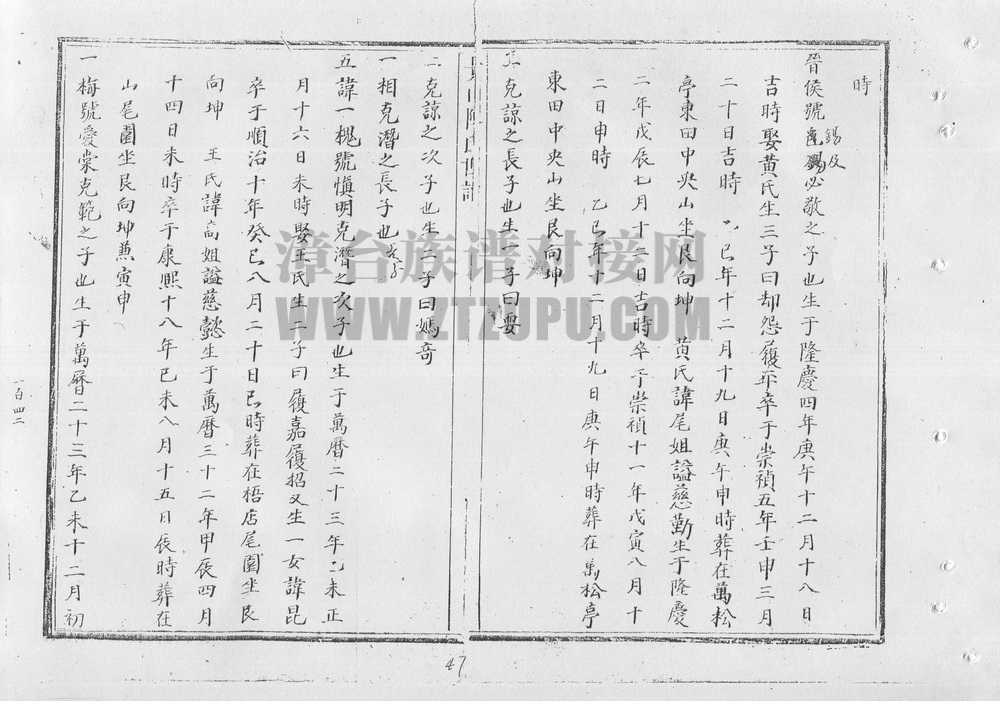 時
晉侯號錫及必敬之子也生于隆慶四年庚午十二月十八日
吉時娶黃氏生三子曰却怨履平卒于崇禎五年壬申三月
二十日吉時 乙巳年十二月十九日庚午申時葬在萬松
亭東田中央山坐艮向坤 黃氏諱尾姐謚慈勤生于隆慶
二年戊辰七月十二日吉時卒于崇禎十一年戊寅八月十
二日申時 乙巳年十二月十九日庚午申時葬在萬松亭
東田中央山坐艮向坤
克諒之長子也生一子曰要
克諒之次子也生二子曰媽奇
一相克潛之長子也
五諱一槐號慎明克潛之次子也生于萬曆二十三年乙未正
月十六日未時娶王氏生二子曰履嘉履招又生一女諱昆
卒于順治十年癸巳八月二十日巳時葬在梧店尾園坐艮
向坤 王氏諱高姐謚慈懿生于萬曆三十二年甲辰四月
十四日未時卒于康熙十八年己未八月十五日辰時葬在
山尾園坐艮向坤兼寅申
一梅號愛棠克範之子也生于萬曆二十三年乙未十二月初
一百四二
47
漳台族谱对接网
WWW.ZTZUPU.COM